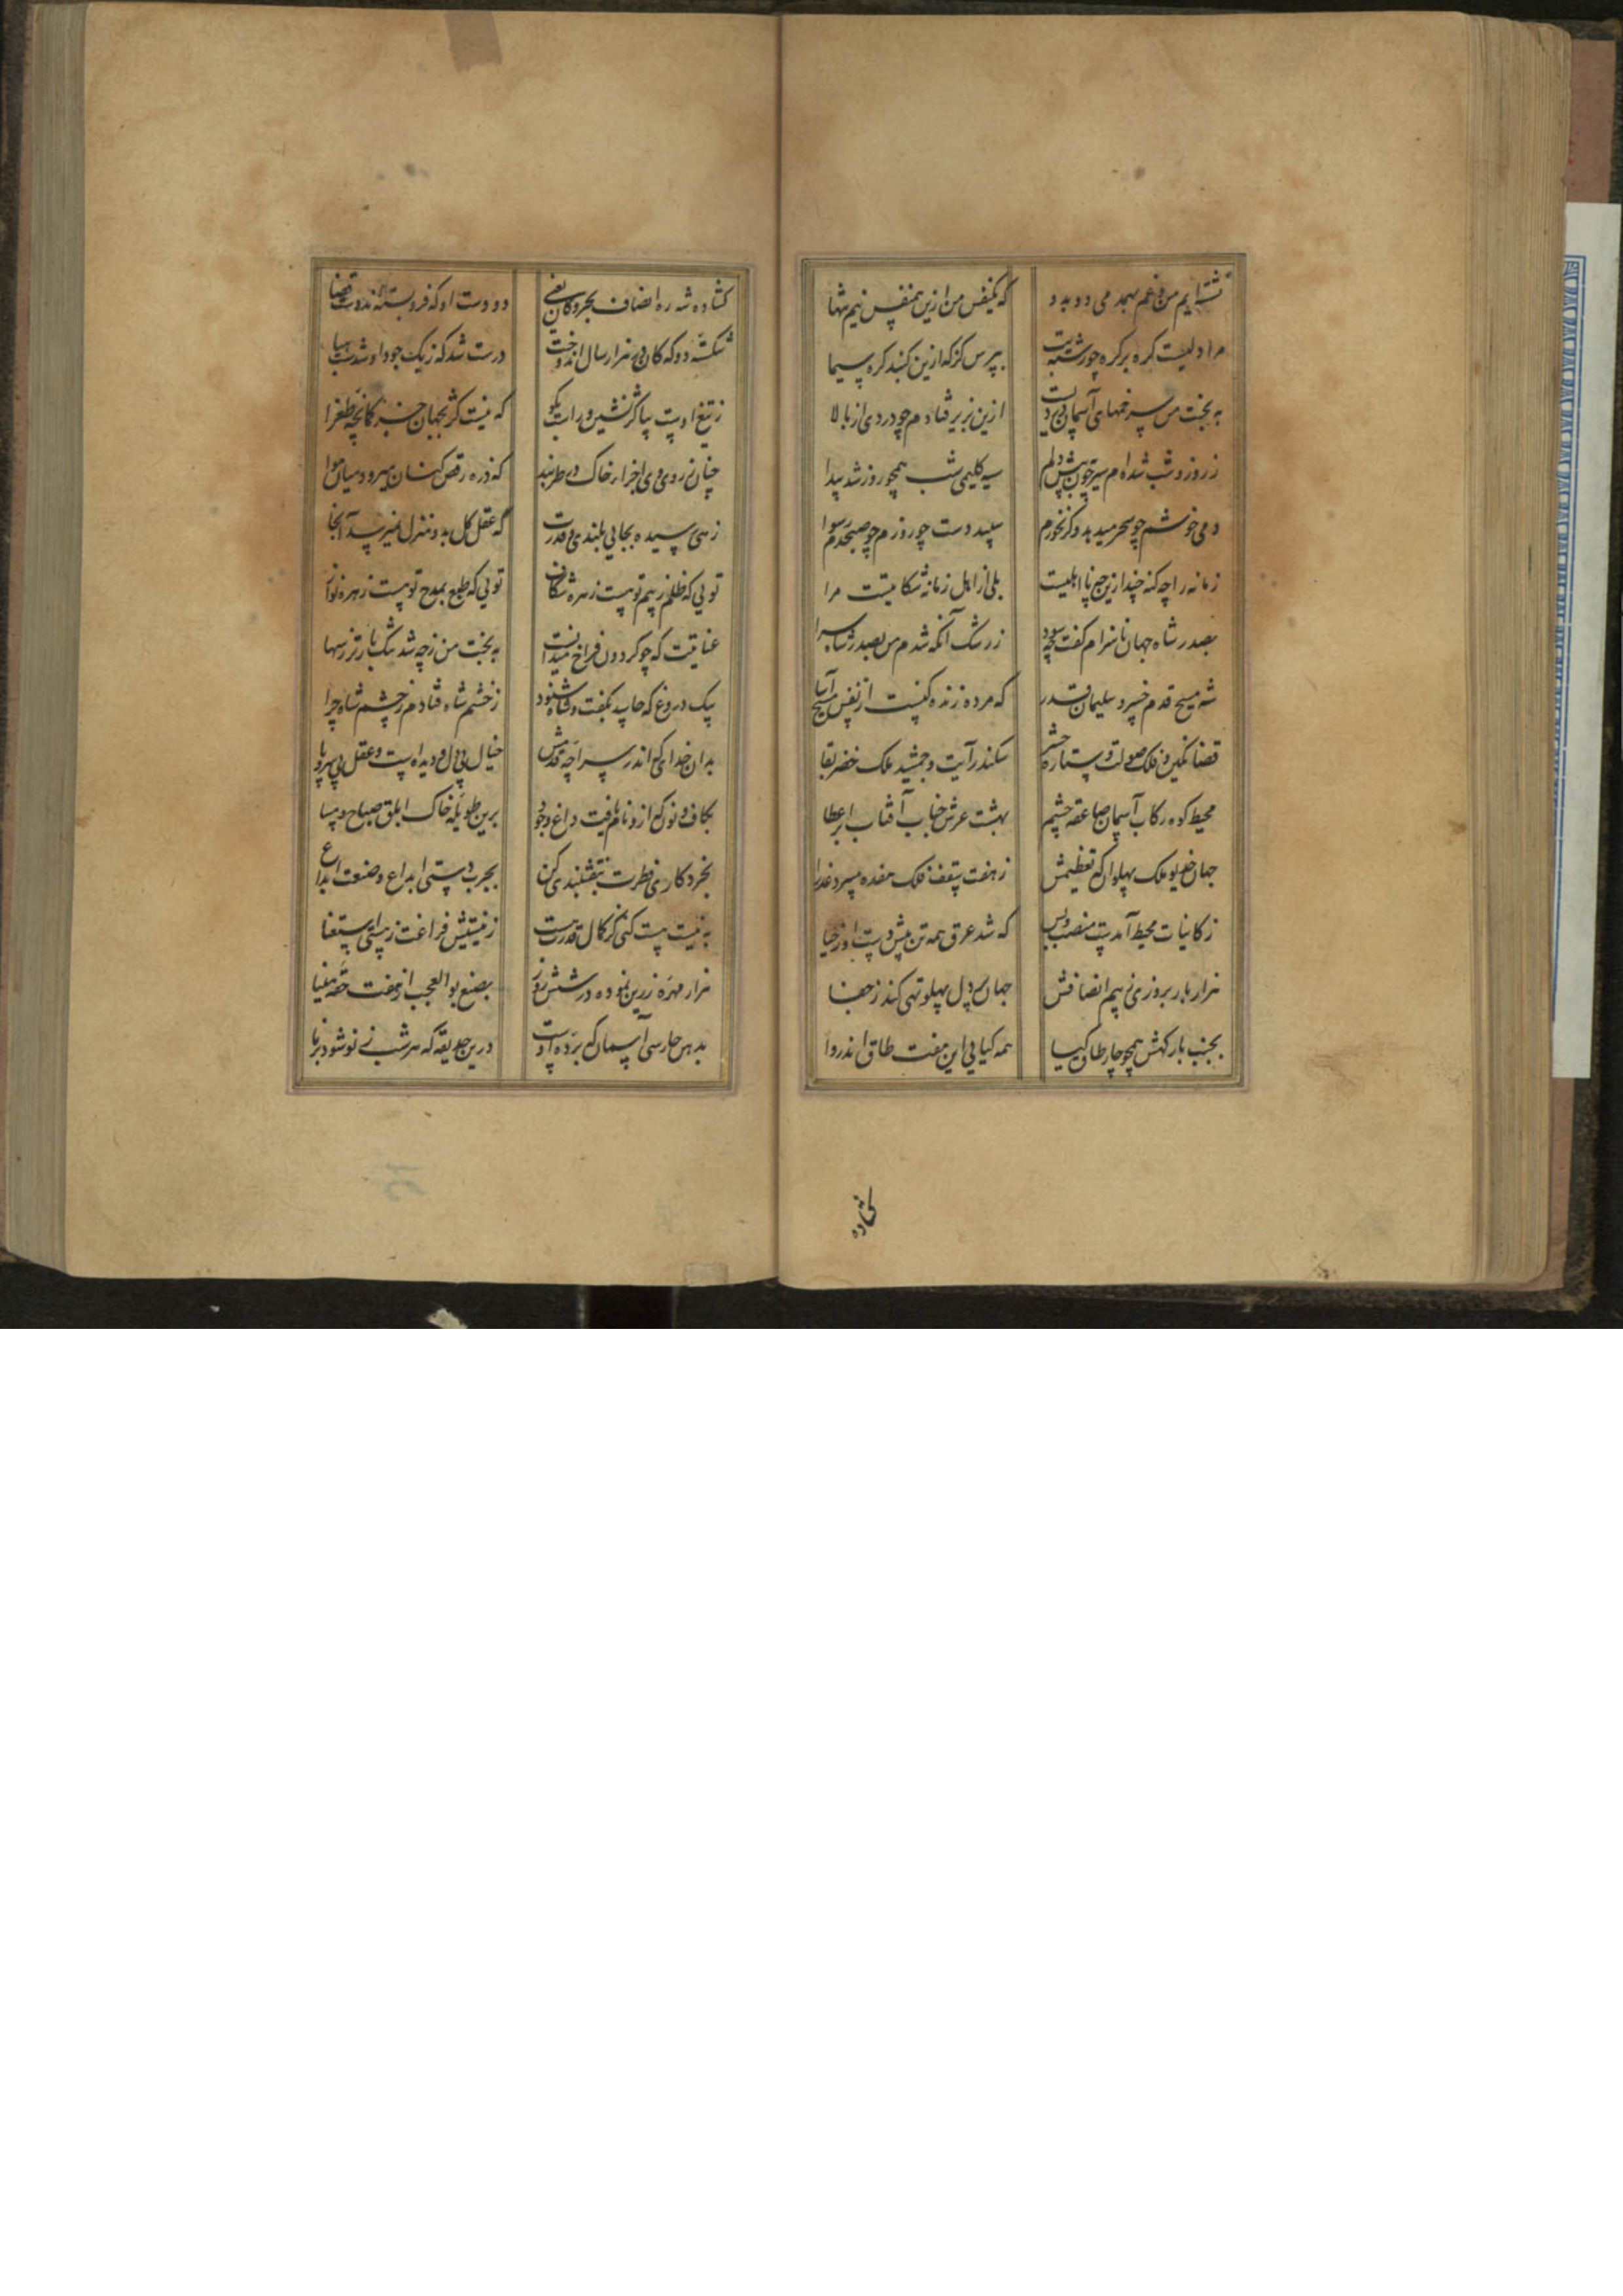 نشسته‌ایم من و غم بهم دمی دو بدو که یکنفس من ازین همنفس نیم تنها
مرا دلیست گره بر گره چو رشته تب بپرس کز که ازین گنبد گره سیما
به بخت من سر خمهای آسمان بی درد ازین بزیر فتادم چو دردی از بالا
ز روز و شب شده‌ام سیر چون پیش دلم سیه گلیمی شب همچو روز شد پیدا
دمی خوشم چو سحر میدهد وگر نخورم سپید دست چو روزم چو صبحدم رسوا
زمانه را چه کنه چندازین چه نااهلیست بلی از اهل زمانه شکایتیست مرا
بصدر شاه جهان ناسزام گفت حسود ز رشک آنکه شدم من بصدر شاه سزا
شه مسیح قدم خسرو سلیمان قدر که مرده زنده کنیست از نفس مسیح آسا
قضا نگین و فلک صولت و ستاره حشم سکندر آیت و جمشید ملک خضر بقا
محیط کوه رکاب آسمان صاعقه چشم بهشت عرش جناب آفتاب ابر عطا
جهان خدیو ملک پهلوان که تعظیمش ز هفت سقف فلک هفده میبرد عذرا
ز کاینات محیط آمد بت منصب و بس که شد عرق همه تن پیش دست او ز حیا
هزار بار بروزی ز بیم انصافش جهان بی‌دل پهلو تهی کند ز جفا
بجنب بارگهش همچو چار طاق گیا همه کیایی این هفت طاق اندروا
کشاده
کشاده شد ره انصاف بحر و کان یعنی دو دست او که فرو بسته‌اند دست قضا
شکسته دو که کان در هزار سال اندوخت درست شد که ز یک جود او شدست هبا
ز تیغ اوست بپا گر نشین و راست بگو که نیست کژ بجهان جز کمانچه طغرا
چنان ز روی وی اجزاء خاک در طربند که ذره رقص کنان میرود میان هوا
زهی رسیده بجایی بلندی قدرت که عقل کل بدو منزل نمیرسد آنجا
تویی که ظلم ز بیم تو هست زهره شکاف تویی که طبع بمدح تو هست زهره نوا
عنایتت که چو گردون فراخ میدانست به بخت من ز چه شد تنگ بارتر ز سها
بیک دروغ که حاسد بگفت و شاه شنود ز خشم شاه فتادم ز چشم شاه چرا
بدان خدای که اندر سراچه قدسش خیال بی دل و دیده است و عقل بی سر و پا
بکاف و نون که ازو نام یافت داغ وجود برین طویله خاک ابلق صباح و مسا
بخرد کاری فطرت بنقشبندی کن بچرب دستی ابداع و صنعت ابدا
به نیست هست کنی کز کمال قدرت هست ز نیستیش فراغت ز هستی استغنا
هزار مهره زرین نموده در شش روز بصنع بوالعجب از هفت حقه مینا
بدهن حارسی آسمان که برده اوست درین حدیقه که هر شب ز نو شود برنا